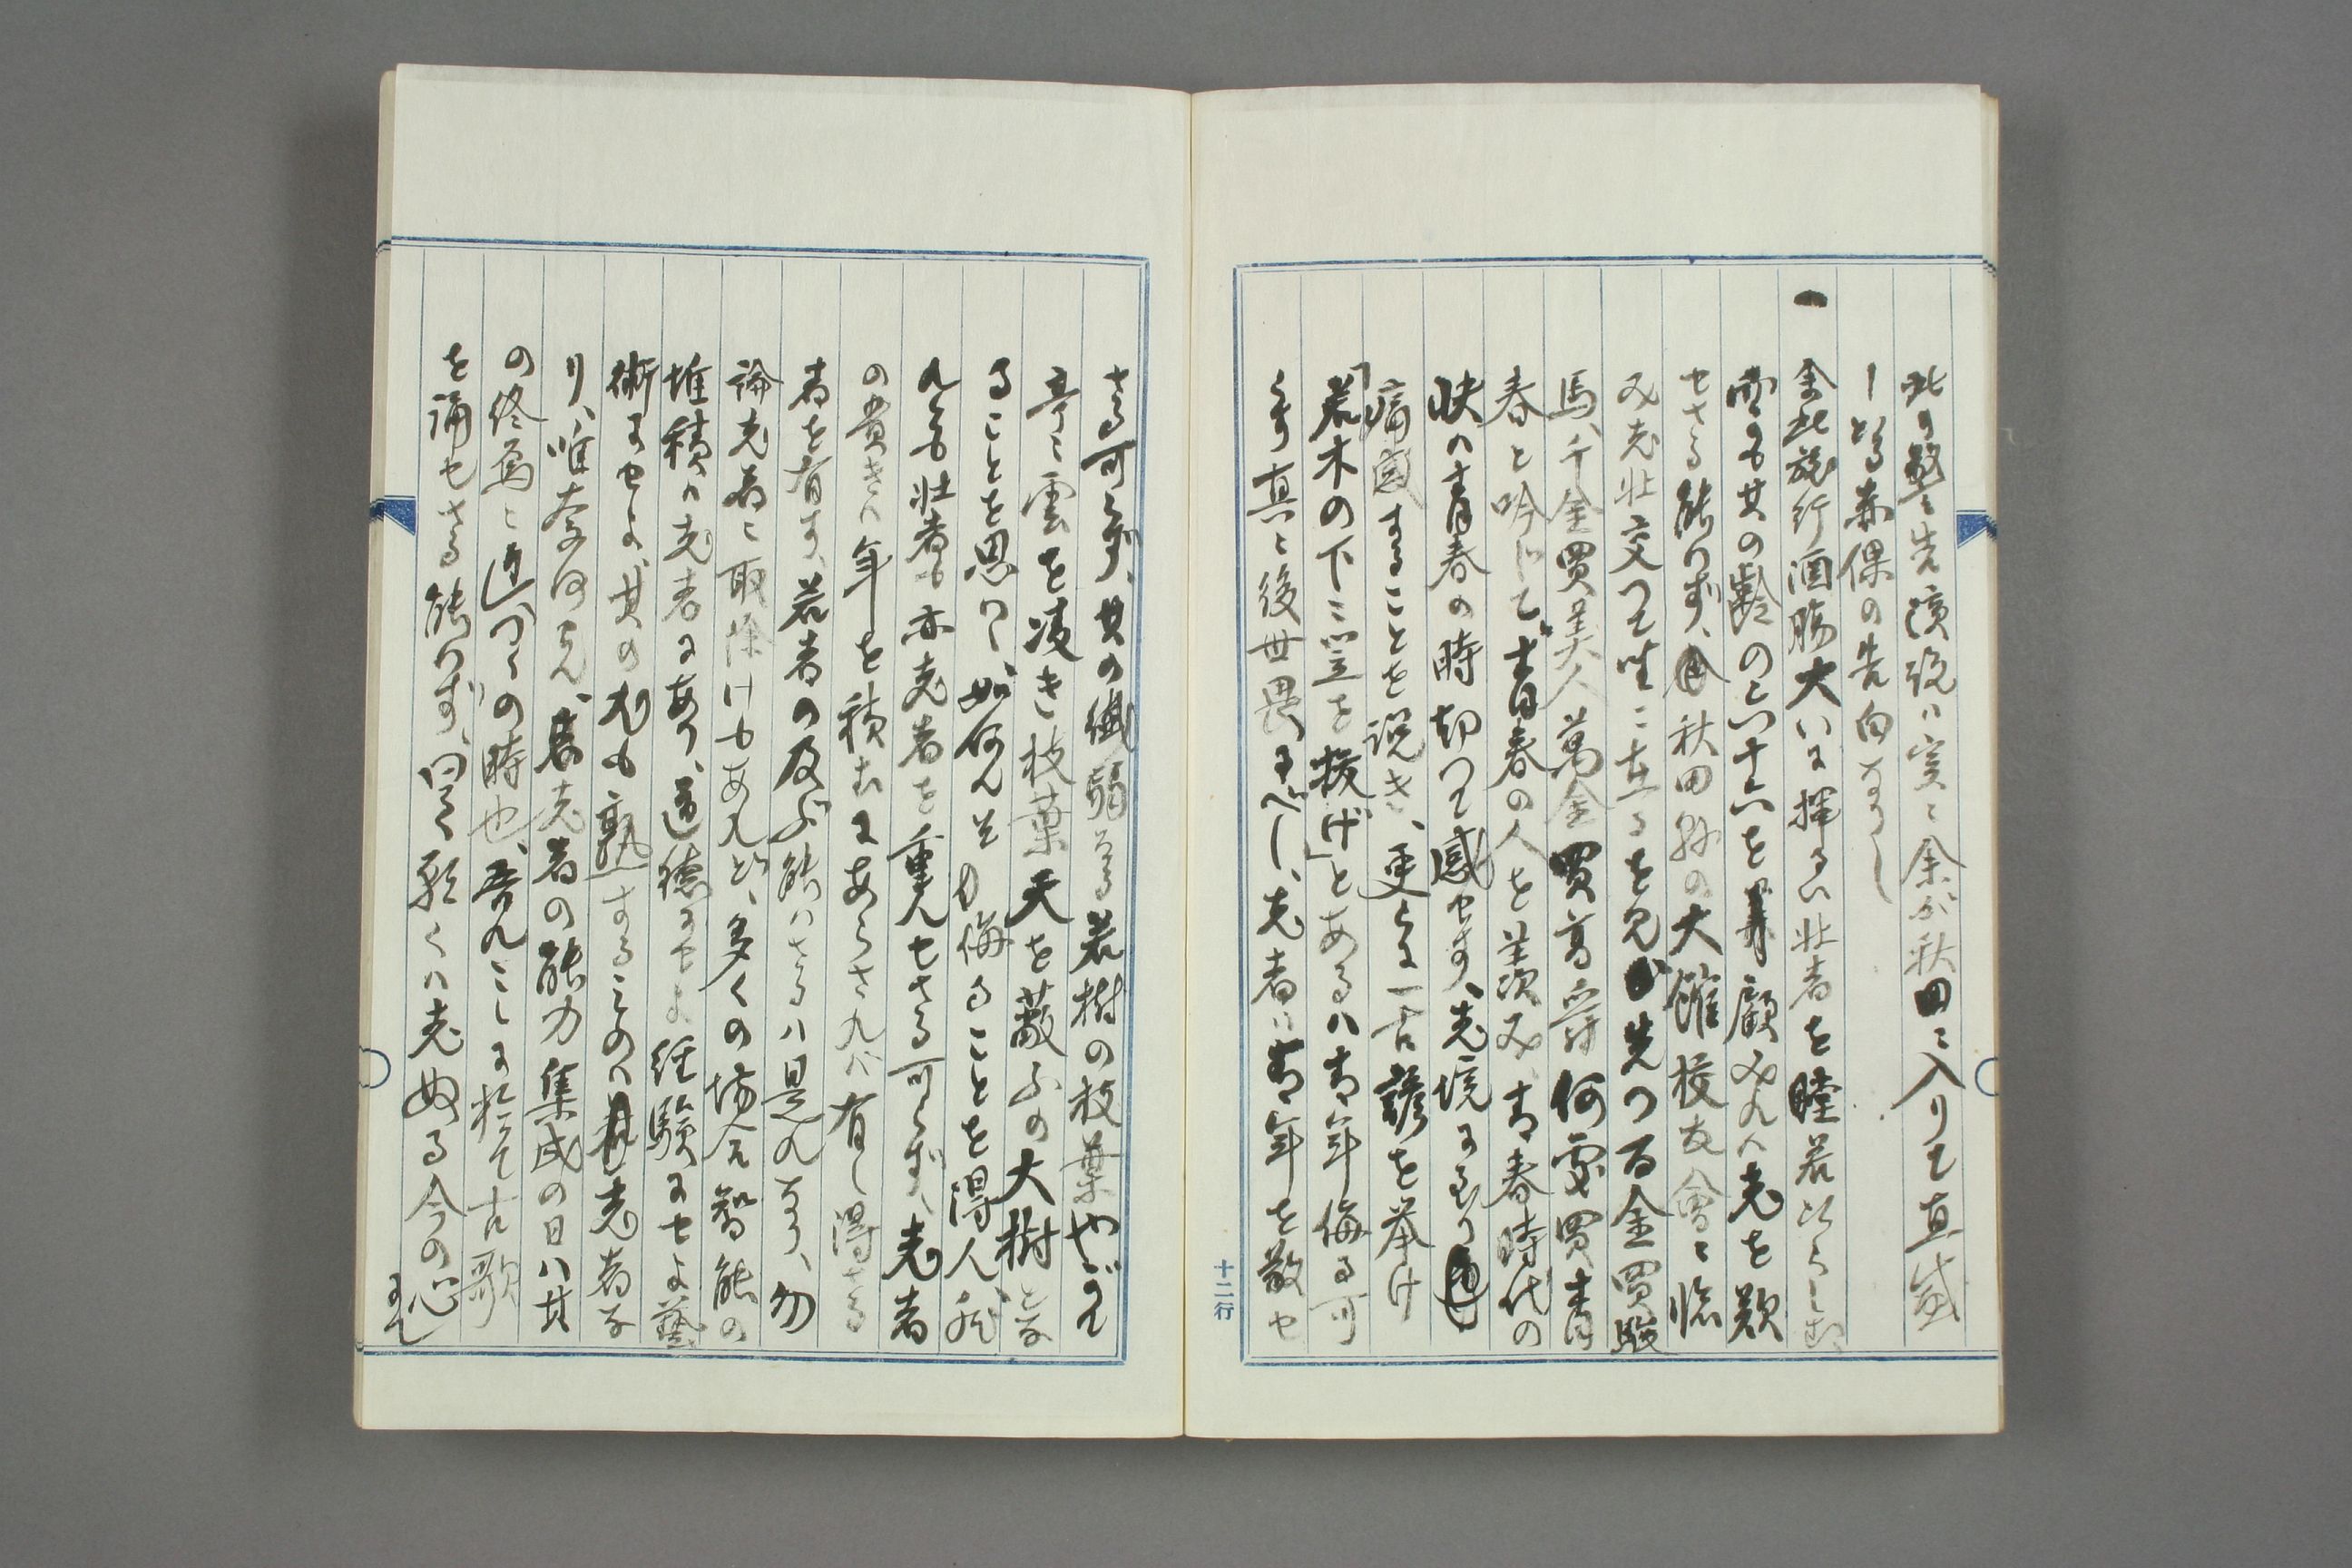 此の駄々先演説ハ実に余が秋田に入りて直感
し𛂦る赤裸の告白なりし
一 余此旅行酒腸大いに揮るい壮者を瞠若たらしむ
雖も其の齢の六十六を顧みれハ老を歎
せさる能わず、秋田縣の大館校友會に臨
み老壮交つて坐に在るを見先つ百金買駿
馬、千金買美人萬金買高爵何処買青
春と吟じて青春の人を羨み、青春時代の
快ハ青春の時切に感せず、老境に至り
痛感することを説き、更に一古諺を挙け
「若木の下ニ笠を挍げ」とあるハ青年侮る可
らず真に後世畏るべし、老者は青年を敬せ
さる可らず、其の繊弱なる若樹の枝葉やがて
亭に雲を凌き枝葉天を蔽ふの大樹とな
ることを思わば如何んそ侮ることを得ん、然
れとも壮者も亦老者を重んせさる可らず、老者
の貴きハ年を積むにあらされバ有し得さる
者を有す、若者の及ぶ能はさるハ是れなり、勿
論老若に取除けもあれど、多くの場合智能の
堆積ハ老者にあり、道徳にせよ経験にせよ藝
術にせよ、其の尤も熟することのハ老者な
り、唯奈何せん、老者の能力集成の日ハ其
の終焉に近つくの時也、吾れこゝに於て古歌
を誦せさる能わず、曰く願くハ老ぬる今の心
にて
十二行